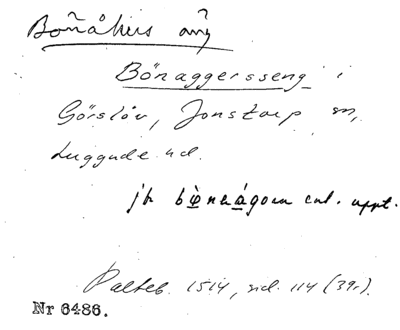 Boñåkers äng
Bönaggersseng i
Görslöv, Jonstorp sn,
Luggude hd.
jfr enl. uppt.
Palteb. 1514, sid. 114 (39r).
Nr 6486.